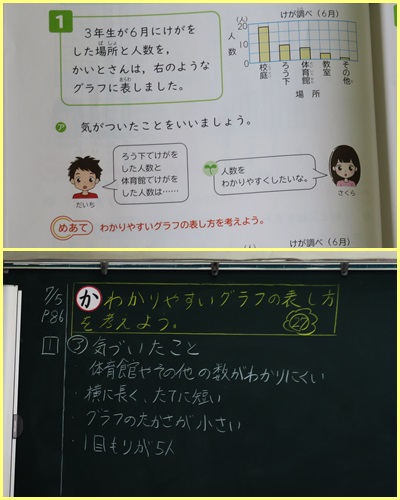 1
3年生が6月にけがを
した場所と人数を,
かいとさんは, 右のような
グラフに表しました。
けが調べ (6月)
(人)
20
10
0
人数
校庭
ろう下
体育館
教室
その他
場所
ア 気がついたことをいいましょう。
ろう下でけがを
した人数と
体育館でけがを
した人数は……
だいち
人数を
わかりやすくしたいな。
さくら
めあて わかりやすいグラフの表し方を考えよう。
けが調べ (6月)
7/5
P86
か わかりやすいグラフの表し方
を考えよう。
1 ア 気づいたこと
体育館やその他の数がわかりにくい
・横に長く、たてに短い
・グラフのたかさが小さい
・1目もりが5人